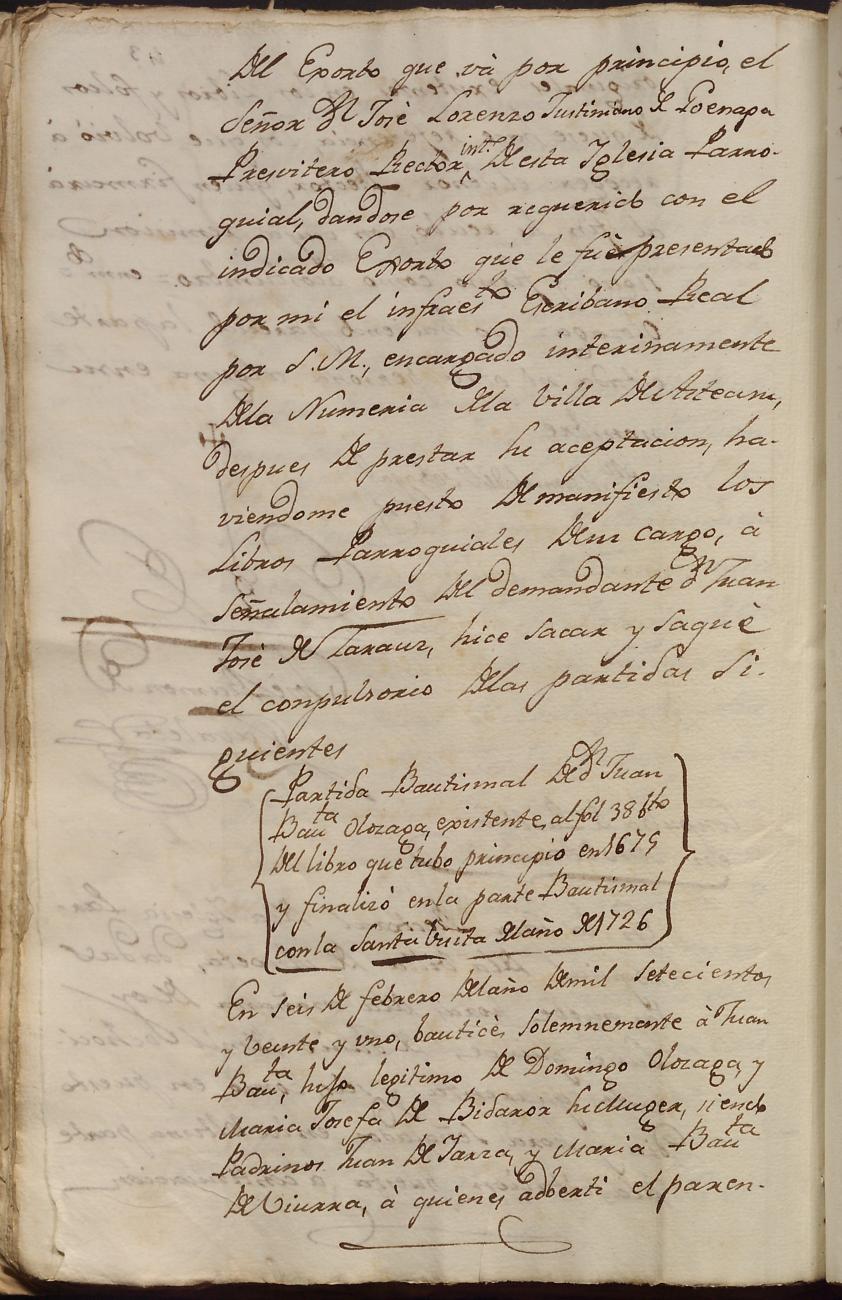 Del Exorto que và por principio, el
Señor Dn. Josè Lorenzo Justiniano de Goenaga
Presvitero Rector intno. de esta Yglesia Parro-
quial, dandose por requerido con el
indicado Exorto que le fuè presentado
por mi el infraesto. Escribano Real
por S. M., encargado interinamente
dela Numeria dela Villa de Asteasu,
despues de prestar su aceptacion, ha-
viendome puesto de manifiesto los
Libros Parroquiales de su cargo, à
Señalamiento del demandante dn. Juan
Josè de Larauz, hice sacar y saquè
el conpulsorio delas partidas Si-
guientes
Partida Bautismal de dn. Juan
Bauta. Olozaga, existente al fol 386 bto
del libro que tubo principio en 1675
y finalizó enla parte Bautismal
conla Santa Visita del año de 1726
En seis de febrero del año de mil setecientos
y Veinte y uno, bauticè solemnemente à Juan
Bauta., hijo legitimo de Domingo Olozaga, y
Maria Josefa de Bidaror su Muger, siendo
Padrinos Juan de Yarza, y Maria Bauta
de Viurra, à quienes adberti el paren-